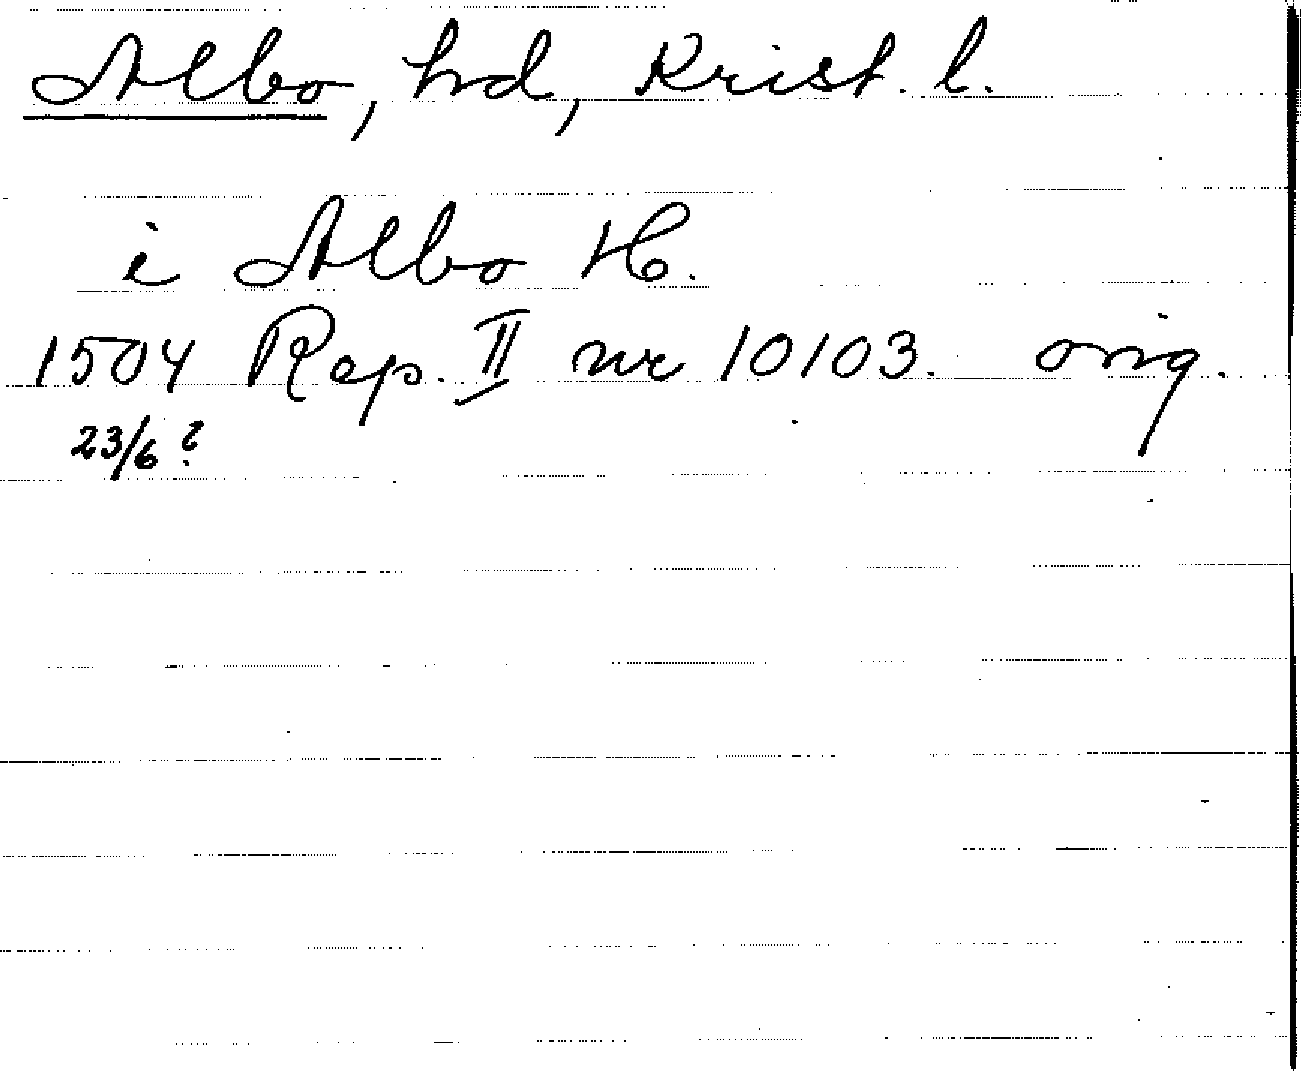 Albo, hd, Krist. l.
i Albo H.
1504 Rep. II nr 10103. orig.
23/6 ?